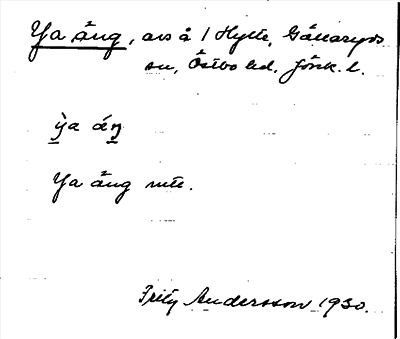 Ya äng, avs å 1 Hylte, Gällaryds
sn, Östbo hd, Jönk. l.
ỳa áŋ
Ya äng nüt.
Fritz Andersson 1930.